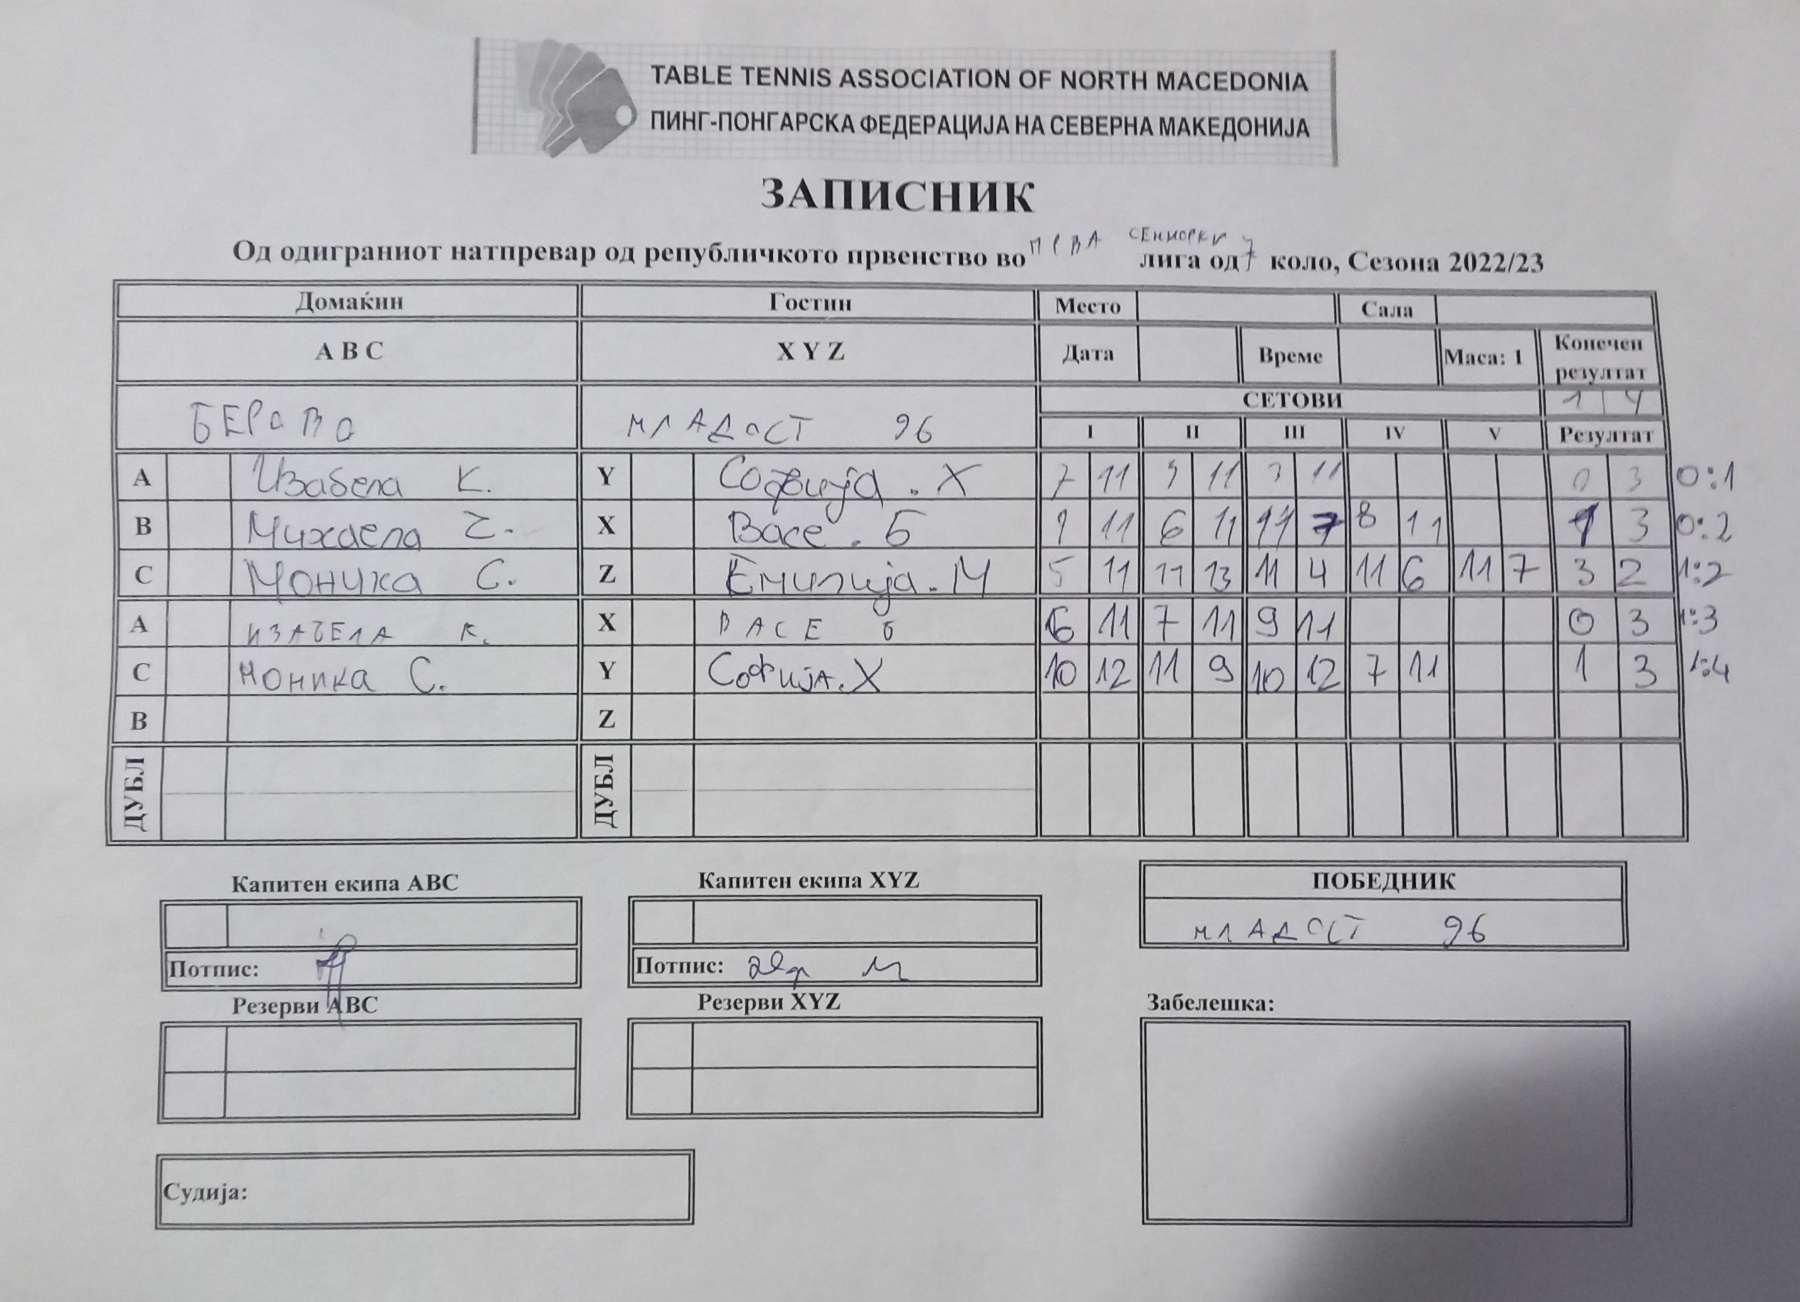 TABLE TENNIS ASSOCIATION OF NORTH MACEDONIA
ПИНГ-ПОНГАРСКА ФЕДЕРАЦИЈА НА СЕВЕРНА МАКЕДОНИЈА
ЗАПИСНИК
Од одиграниот натпревар од републичкото првенство во ПРВА СЕНИОРКИ лига од 7 коло, Сезона 2022/23
Домаќин Гостин Место Сала
A B C X Y Z Дата Време Маса: 1 Конечен резултат
БЕРОВО МЛАДОСТ 96 СЕТОВИ 1 4
I II III IV V Резултат
A Изабела К. Y Софија . Х 7 11 11 11 0 3 0:1
B Михаела X Васе . Б 11 6 11 11 7 8 11 1 3 0:2
C Моника С. Z Емилија . М 5 11 11 13 11 4 11 6 11 7 3 2 1:2
A ИЗАБЕЛА К. X ВАСЕ Б 6 11 7 11 9 11 0 3 1:3
C Моника С. Y Софија . Х 10 12 11 9 10 12 7 11 1 3 1:4
B Z
ДУБЛ ДУБЛ
Капитен екипа ABC Капитен екипа XYZ ПОБЕДНИК
МЛАДОСТ 96
Потпис: Потпис:
Резерви ABC Резерви XYZ Забелешка:
Судија: